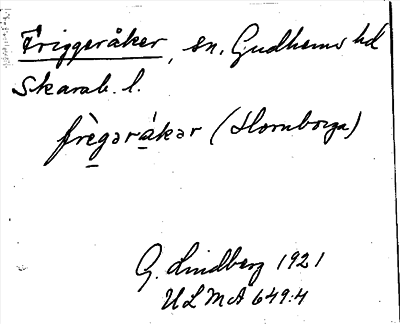 Friggeråker, sn. Gudhems hd
Skarab. l.
frègərákər (Hornborga)
G. Lindberg 1921
ULMA 649:4